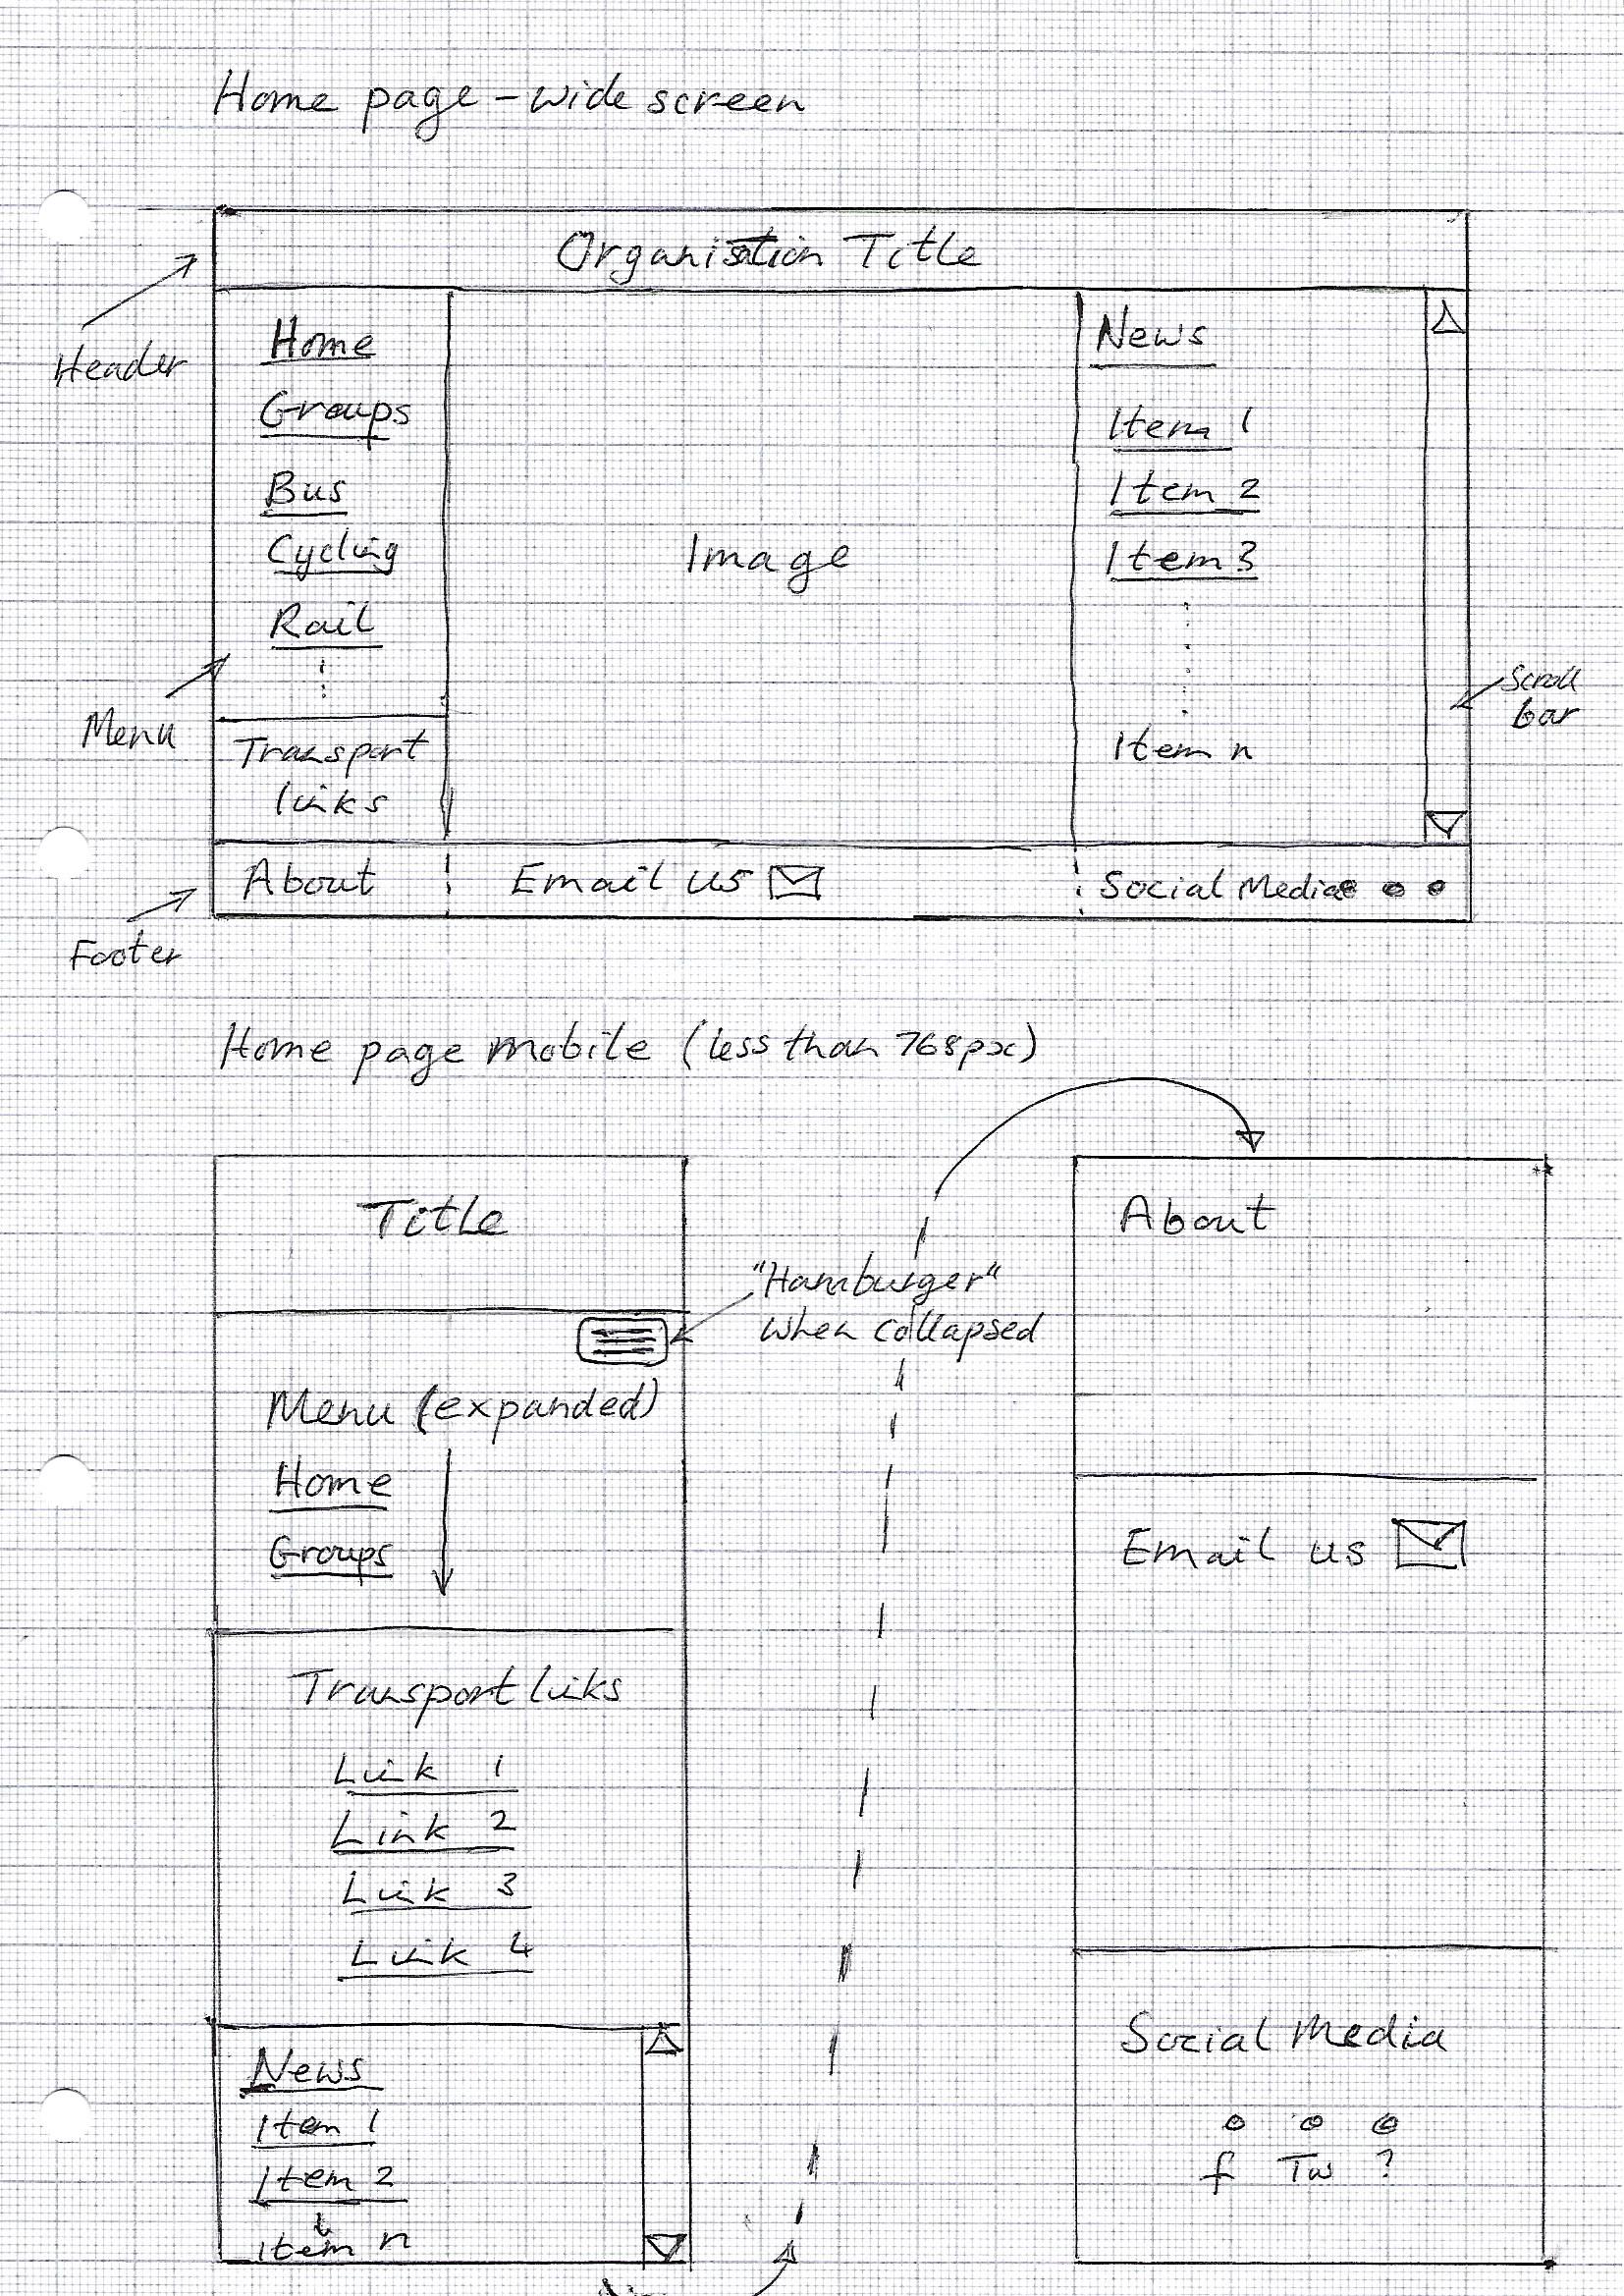 Home page - wide screen
Organisation Title
Header
Home
Groups
Bus
Cycling
Rail
Menu
Transport
links
Image
News
Item 1
Item 2
Item 3
Item n
Scroll
bar
About
Email us
Social Media
Footer
Home page mobile (less than 768px)
Title
"Hamburger"
when collapsed
Menu (expanded)
Home
Groups
Transport links
Link 1
Link 2
Link 3
Link 4
News
Item 1
Item 2
Item n
About
Email us
Social Media
f Tw ?